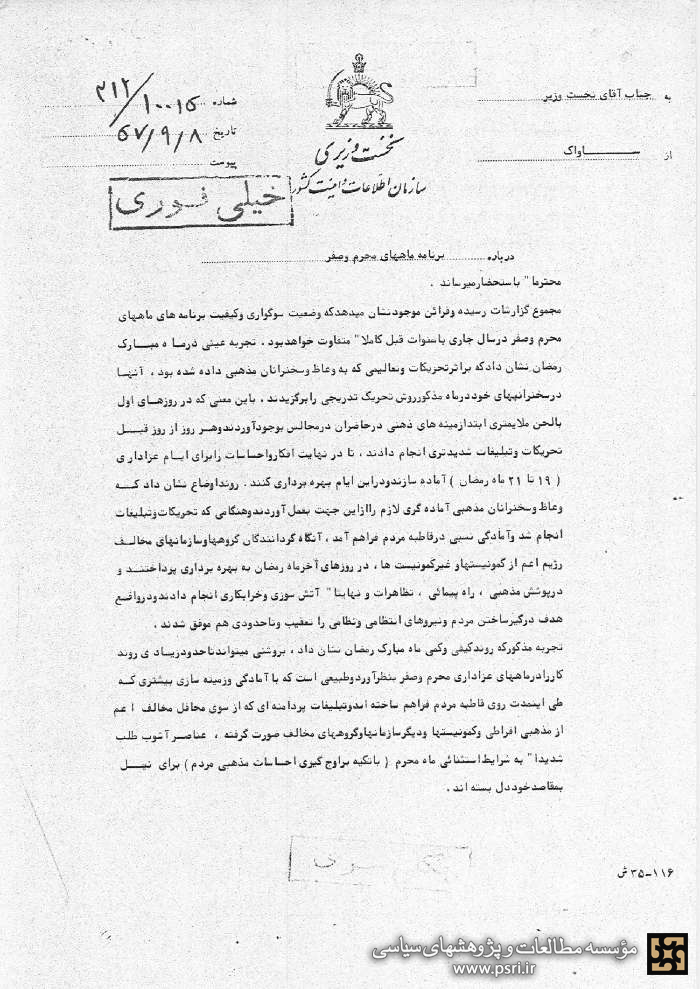 به جناب آقای نخست وزیر
از ســـاواک
نخست وزیری
سازمان اطلاعات و امنیت کشور
شماره ۳۱۲/۱۰۰۱۵
تاریخ ۵۷/۹/۸
پیوست
خیلی فوری
درباره برنامه ماههای محرم وصفر
محترما" باستحضار میرساند .
مجموع گزارشات رسیده وقرائن موجودنشان میدهدکه وضعیت سوگواری وکیفیت برنامه های ماههای
محرم وصفر درسال جاری باسنوات قبل کاملا" متفاوت خواهدبود . تجربه عینی درماه مبـارک
رمضان نشان دادکه براثرتحریکات وتعالیمی که به وعاظ وسخنرانان مذهبی داده شده بود ، آنهـا
درسخنرانیهای خوددرماه مذکورروش تحریک تدریجی رابرگزیدند ، باین معنی که در روزهـای اول
بالحن ملایمتری ابتدازمینه های ذهنی درحاضران درمجالس بوجودآوردندوهر روز از روز قبـل
تحریکات وتبلیغات شدیدتری انجام دادند ، تا در نهایت افکارواحساسات رابرای ایـام عزاداری
( ۱۹ تا ۲۱ ماه رمضان ) آماده سازندودراین ایام بهره برداری کنند . رونداوضاع نشان داد کـه
وعاظ وسخنرانان مذهبی آماده گری لازم راازاین جهت بعمل آوردندوهنگامی که تحریکات وتبلیغات
انجام شد وآمادگی نسبی درقاطبه مردم فراهم آمد ، آنگاه گردانندگان گروههاوسازمانهای مخالـف
رژیم اعم از کمونیستهاو غیرکمونیست ها ، در روزهای آخرماه رمضان به بهره برداری پرداختنـد و
درپوشش مذهبی ، راه پیمائی ، تظاهرات و نهایتا" آتش سوزی وخرابکاری انجام دادندودرواقع
هدف درگیرساختن مردم ونیروهای انتظامی ونظامی را تعقیب وتاحدودی هم موفق شدند .
تجربه مذکورکه روندکیفی وکمی ماه مبارک رمضان نشان داد ، بروشنی میتواندتاحدودزیـادی روند
کارزادرماههای عزاداری محرم وصفر بنظرآوردوطبیعی است که با آمادگی وزمینه سازی بیشتری کـه
طی اینمدت روی قاطبه مردم فراهم ساخته اندوتبلیغات پردامنه ای که از سوی محافل مخالف اعم
از مذهبی افراطی وکمونیستها ودیگرسازمانهاوگروههای مخالف صورت گرفته ، عناصر آشوب طلب
شدیدا" به شرایط استثنائی ماه محرم ( باتکیه براوج گیری احساسات مذهبی مردم ) برای نیـل
بمقاصدخوددل بسته اند .
۳۵-۱۱۶ ش
مؤسسه مطالعات و پژوهشهای سیاسی
www.psri.ir